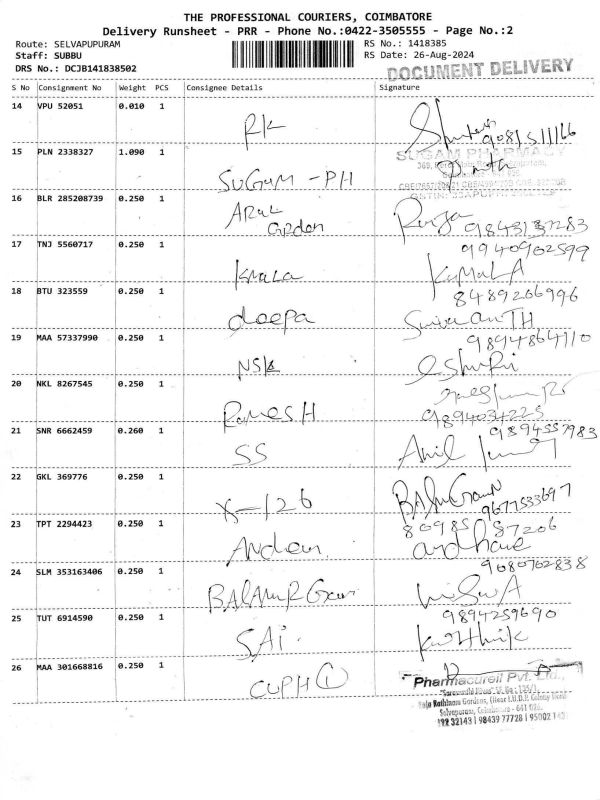 THE PROFESSIONAL COURIERS, COIMBATORE
Delivery Runsheet - PRR - Phone No.:0422-3505555 - Page No.:2
Route: SELVAPUPURAM RS No.: 1418385
Staff: SUBBU RS Date: 26-Aug-2024
DRS No.: DCJB141838502
DOCUMENT DELIVERY
S No Consignment No Weight PCS Consignee Details Signature
14 VPU 52051 0.010 1 RK
SUGAM PHARMACY
15 PLN 2338327 1.090 1 SUGUM - PH
16 BLR 285208739 0.250 1 ARUL
9843137283
9940902599
17 TNJ 5560717 0.250 1 KMALA KAMALA
8489266996
18 BTU 323559 0.250 1 deepa
9894864110
19 MAA 57337990 0.250 1 NSK
20 NKL 8267545 0.250 1 RAMESH
9894034225
21 SNR 6662459 0.260 1 SS Anil
22 GKL 369776 0.250 1 X-126
9677533697
80985 87206
23 TPT 2294423 0.250 1
9080702838
24 SLM 353163406 0.250 1
9894259690
25 TUT 6914590 0.250 1 SAI. Karthik
26 MAA 301668816 0.250 1 CUPH 1
Pharmacureil Pvt. Ltd.,
Raja Rathinam Gardens,
Selvapuram, Coimbatore - 641 026.
98439 77728